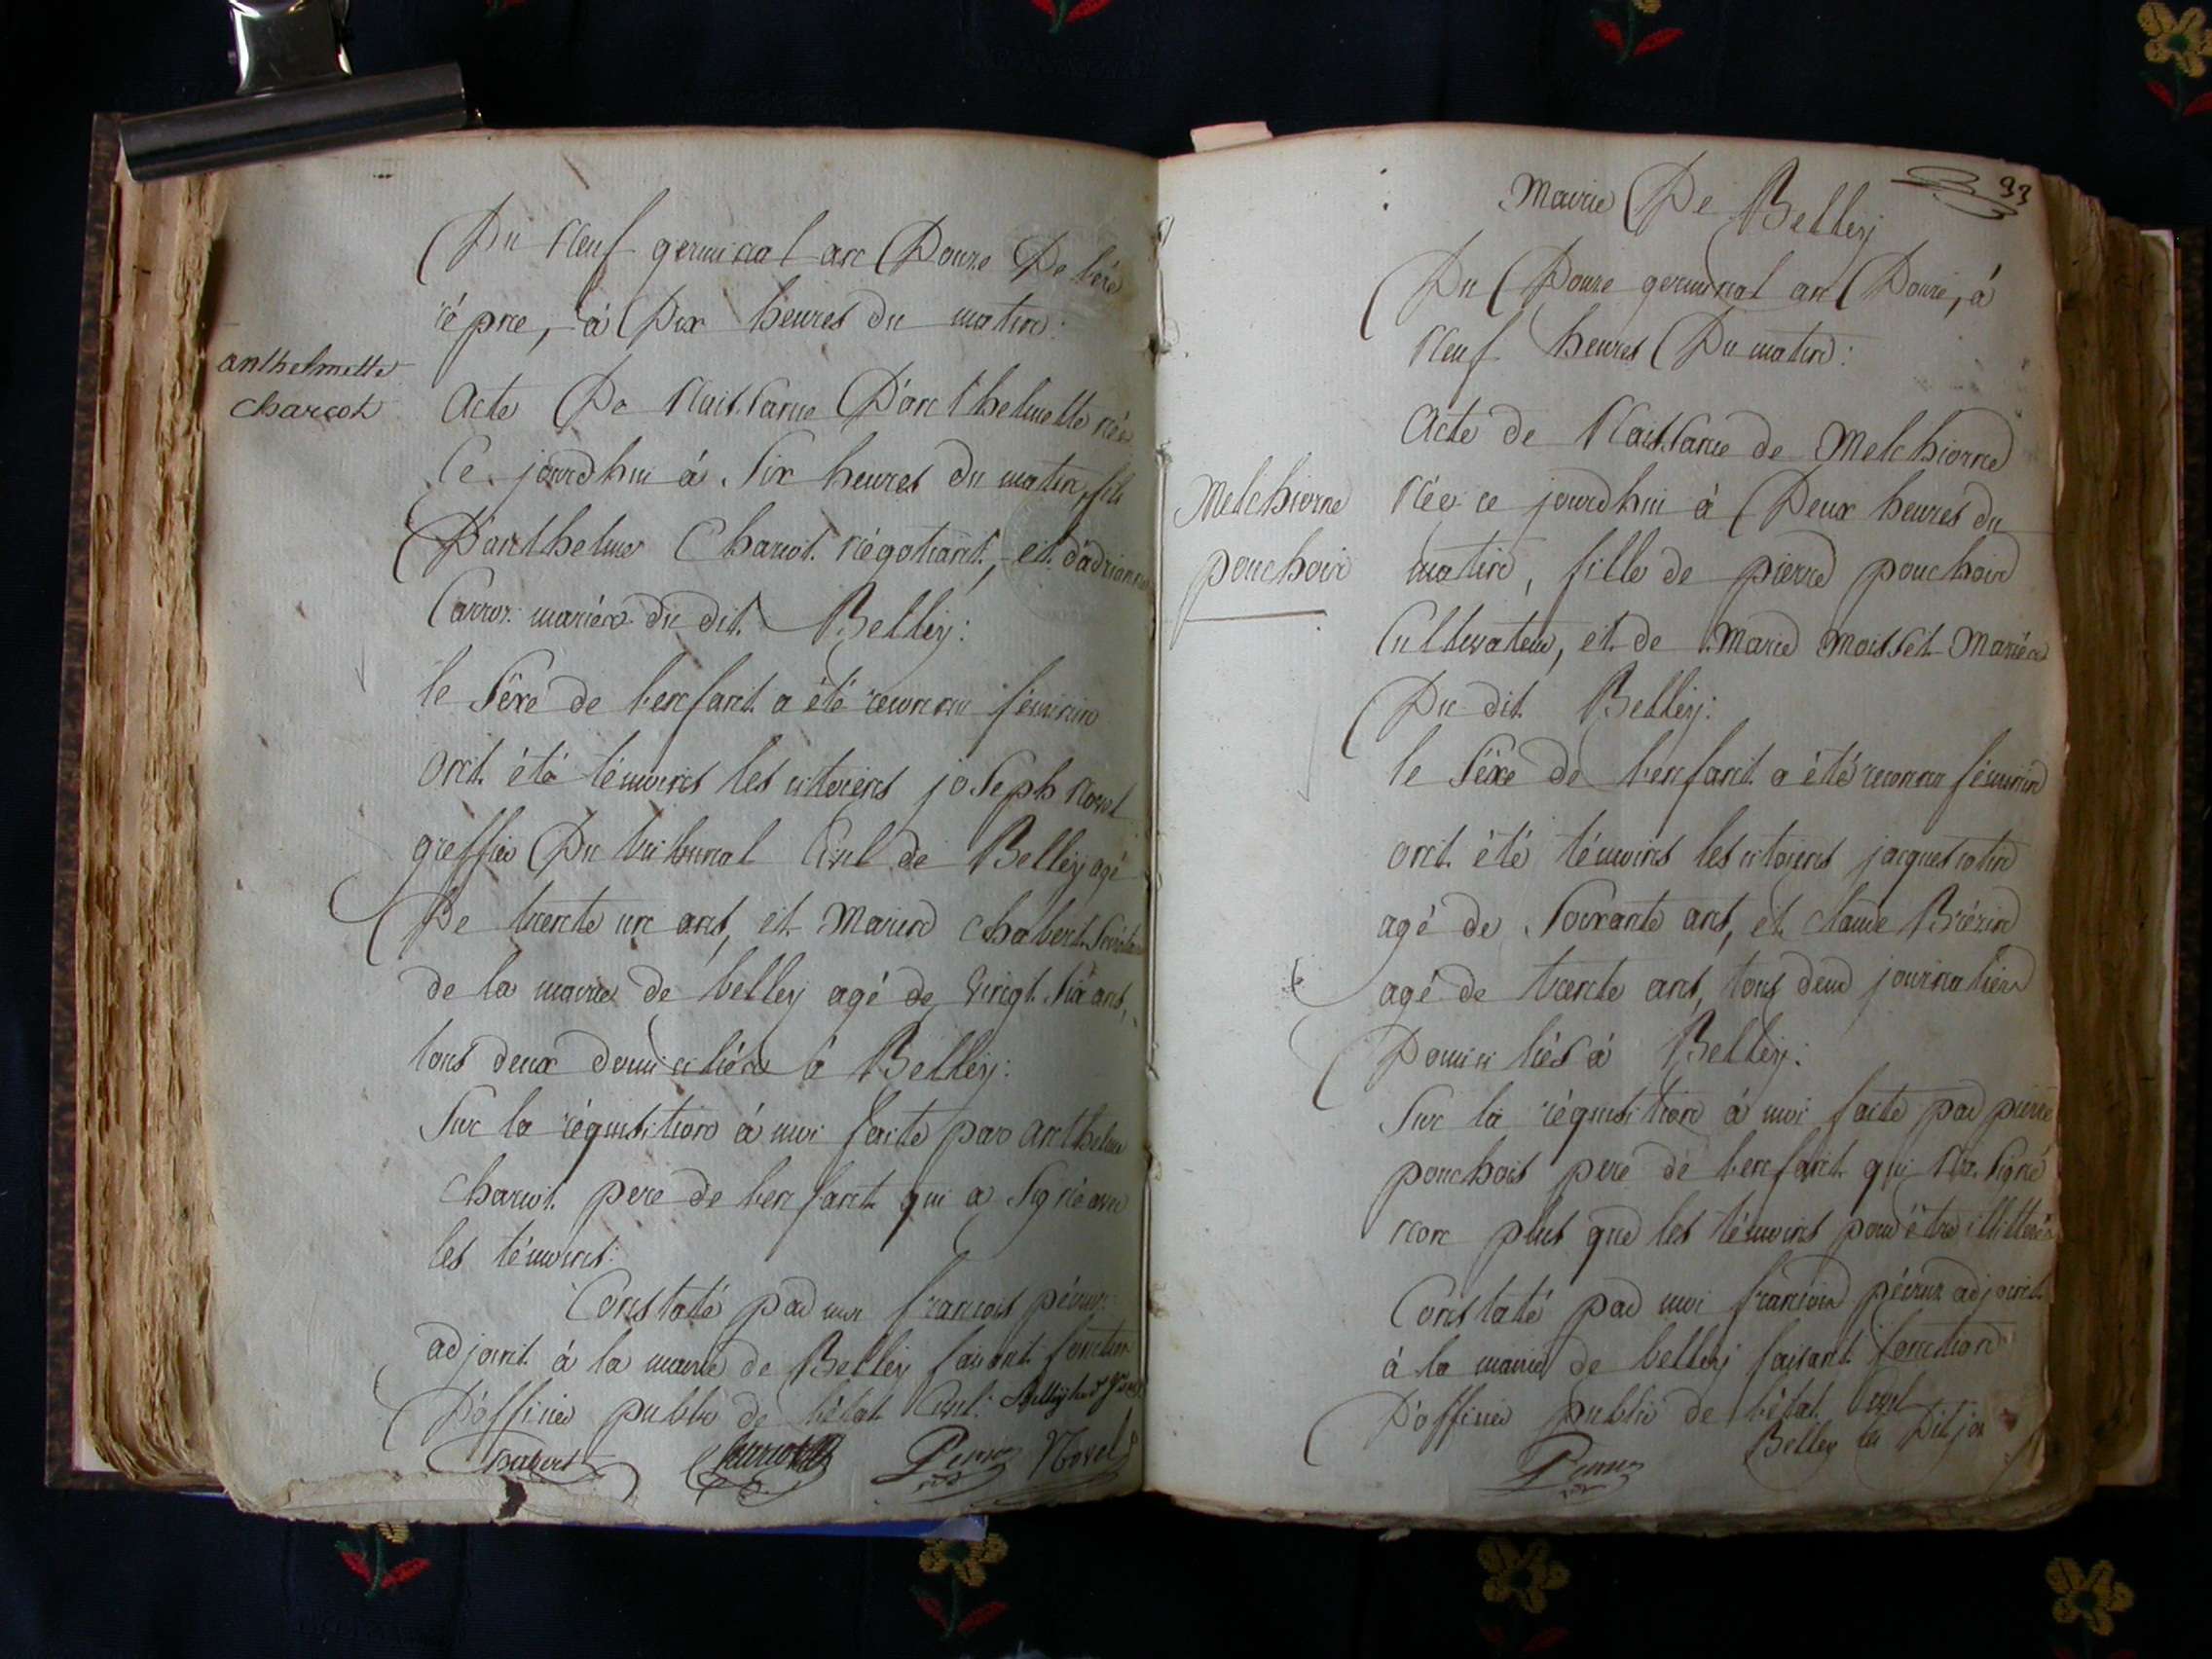 Du neuf germinal an Douze De l'ère
répne, à Dix heures du matin:
anthelmette
charcot
Acte De Naissance D'anthelmette née
Ce jourdhui à Six heures du matin, fille
D'anthelme Charcot négotiant, et d'adrianne
mariés du dit Belley:
le Sexe de l'enfant a été reconnu féminin
ont été témoins les citoiens joseph
greffier Du tribunal Civil de Belley agé
De trente un ans, et Marin Chabert Secrétaire
de la mairie de belley agé de vingt six ans,
tous deux domiciliés à Belley:
Sur la réquisition à moi faite par anthelme
charcot pere de l'enfant qui a Signé avec
les témoins:
Constaté par moi francois
adjoint à la mairie de Belley faisant fonction
D'officier public de l'état Civil:
Mairie De Belley
93
Du Douze germinal an Douze, à
neuf heures Du matin:
Acte de Naissance de Melchiorne
Melchiorne
née ce jourdhui à Deux heures du
ponchoin
matin, fille de pierre ponchoin
Cultivateur, et de Marie Moisset Mariés
Du dit Belley:
le Sexe de l'enfant a été reconnu féminin
ont été témoins les citoiens jacques cotin
agé de Soixante ans, et claude
agé de trente ans, tous deux journaliers
Domiciliés à Belley:
Sur la réquisition à moi faite par pierre
pere de l'enfant qui n'a Signé
non plus que les témoins pour être illittérés
Constaté par moi francois adjoint
à la mairie de belley faisant fonction
D'officier public de l'état Civil
Belley les Dit jour